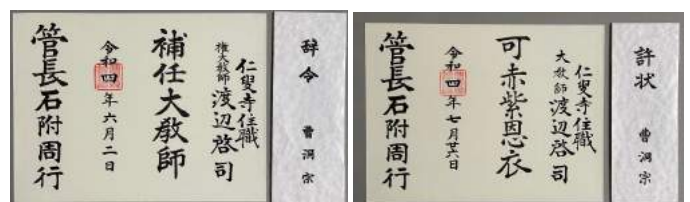 辞令
曹洞宗
仁叟寺住職
権大教師 渡辺啓司
補任大教師
令和四年六月二日
管長石附周行
許状
曹洞宗
仁叟寺住職
大教師 渡辺啓司
可赤紫恩衣
令和四年七月廿六日
管長石附周行